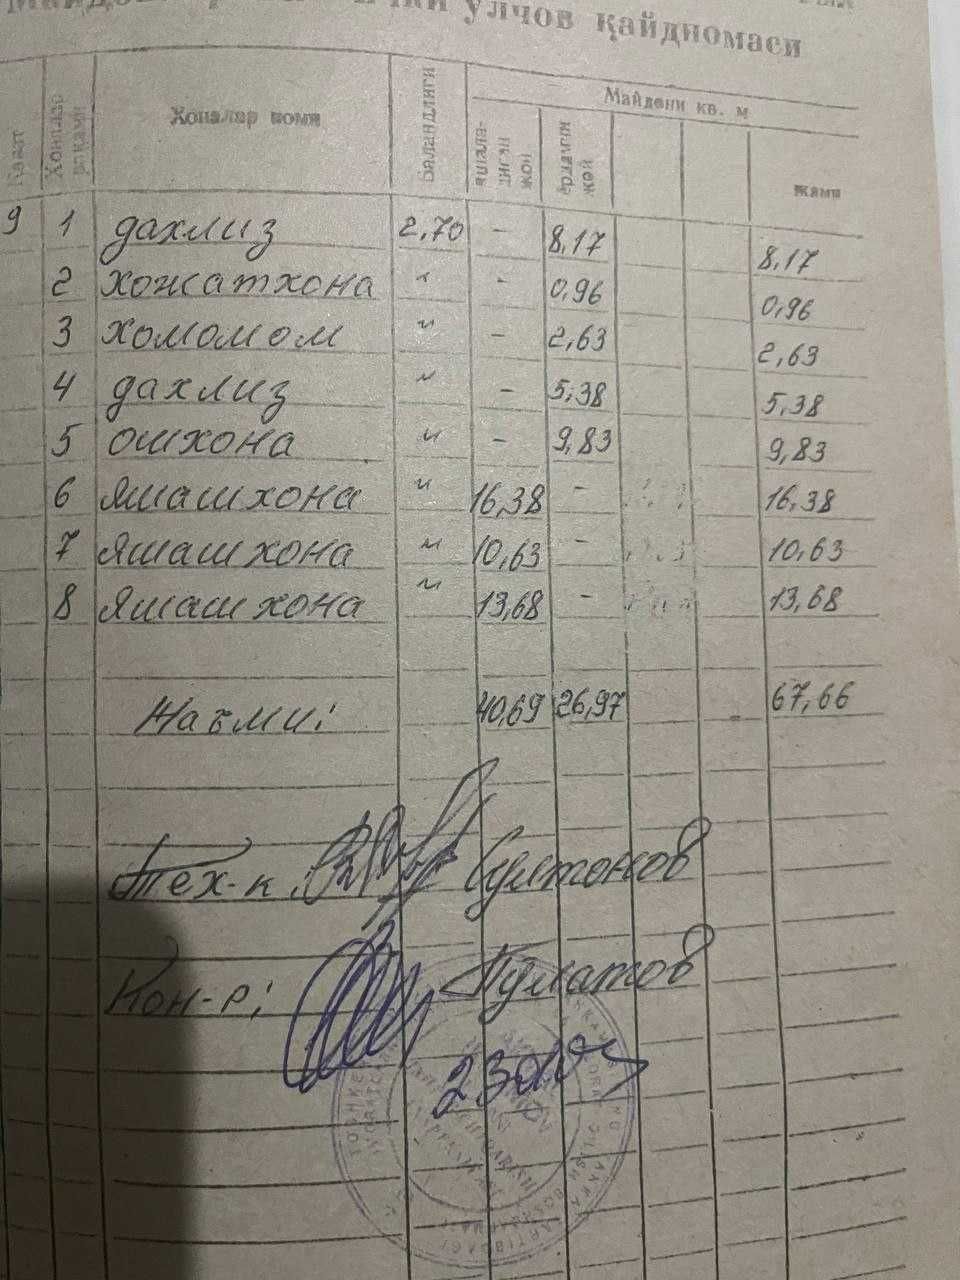 ўлчов қайдномаси
Қават
Хоналар рақами
Хоналар номи
Баландлиги
Майдони кв. м
жами
9 1 дахлиз 2,70 - 8,17 8,17
2 хожатхона " - 0,96 0,96
3 хомомом " - 2,63 2,63
4 дахлиз " - 5,38 5,38
5 ошхона " - 9,83 9,83
6 яшашхона " 16,38 - 16,38
7 яшашхона " 10,63 - 10,63
8 яшашхона " 13,68 - 13,68
Жаъми: 40,69 26,97 67,66
Тех-к: Султонов
Кон-р: Пулатов